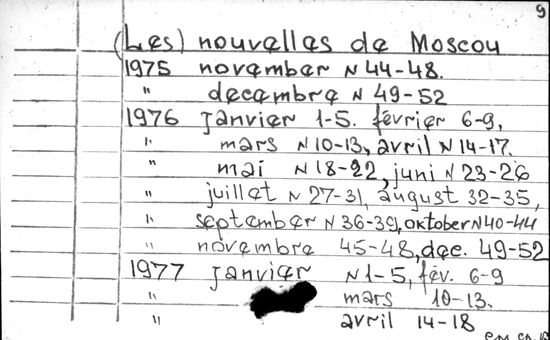 9
(Les) nouvelles de Moscou
1975 november N 44-48.
" decembre N 49-52
1976 janvier 1-5. février 6-9,
" mars N 10-13, avril N 14-17.
" mai N 18-22, juni N 23-26
" juillet N 27-31, august 32-35,
" september N 36-39, oktober N 40-44
" novembre 45-48, dec. 49-52
1977 janvier N 1-5, fév. 6-9
" mars 10-13.
" avril 14-18